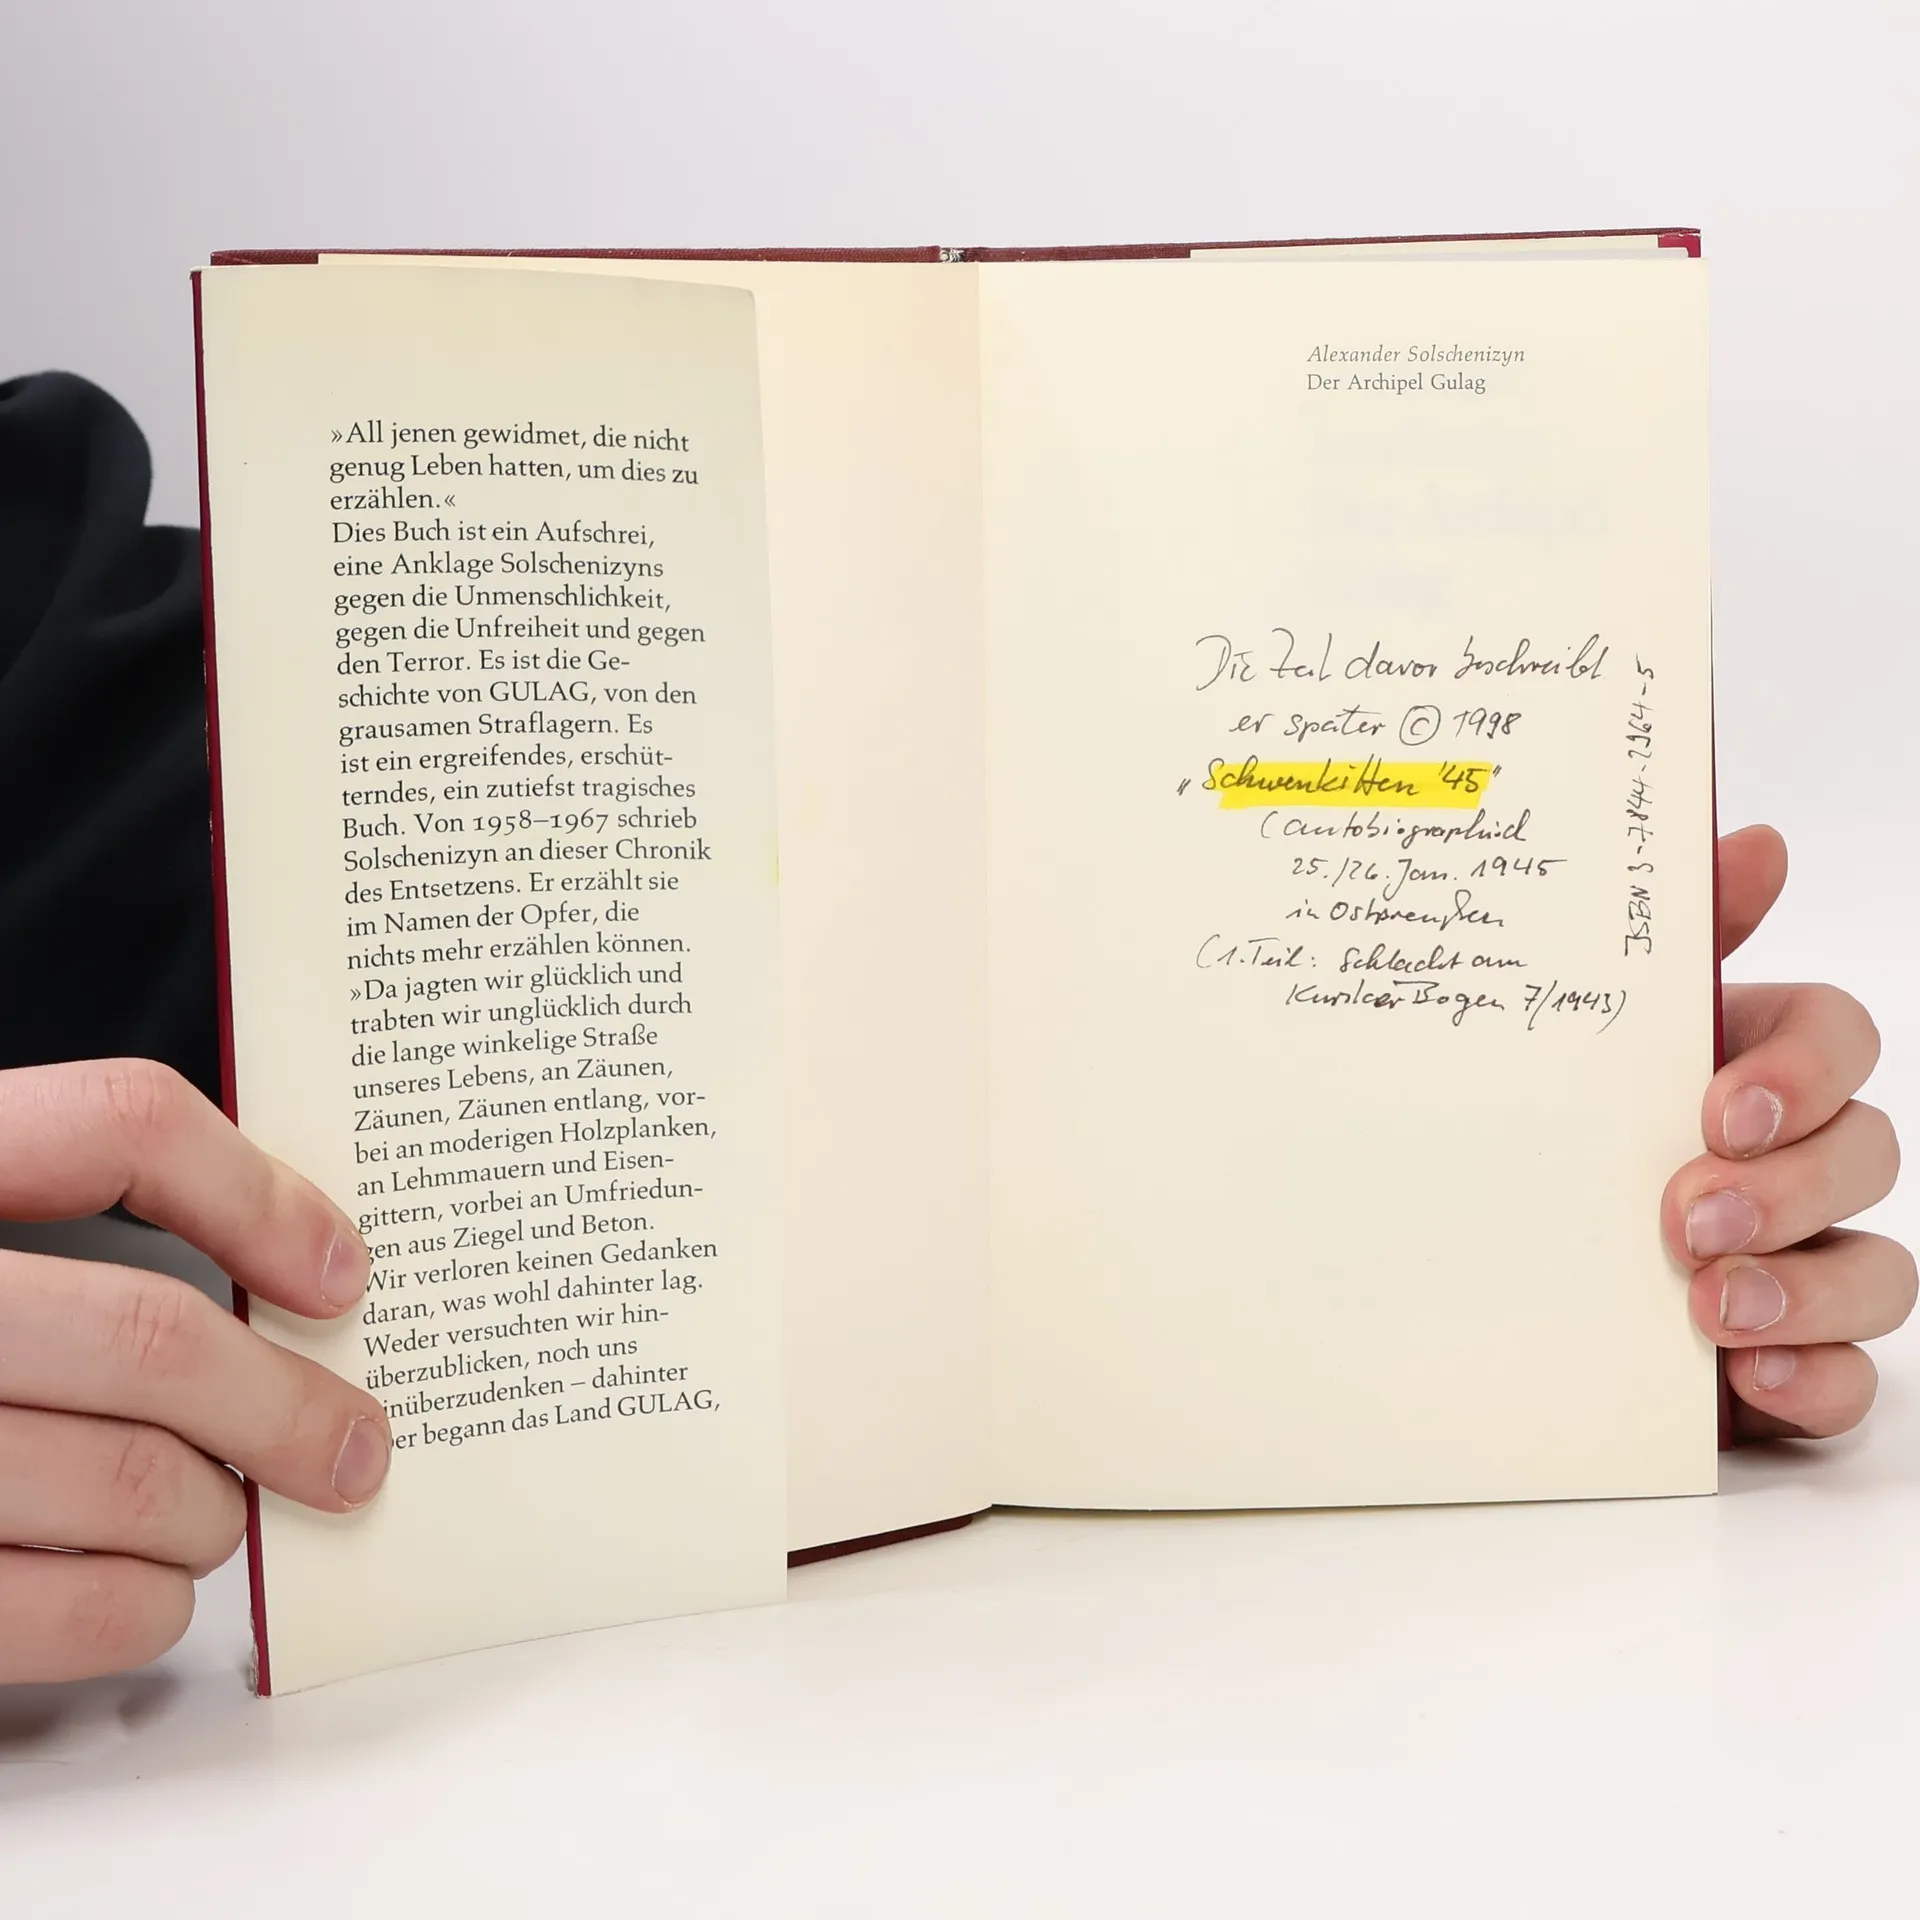 »All jenen gewidmet, die nicht
genug Leben hatten, um dies zu
erzählen.«
Dies Buch ist ein Aufschrei,
eine Anklage Solschenizyns
gegen die Unmenschlichkeit,
gegen die Unfreiheit und gegen
den Terror. Es ist die Ge-
schichte von GULAG, von den
grausamen Straflagern. Es
ist ein ergreifendes, erschüt-
terndes, ein zutiefst tragisches
Buch. Von 1958–1967 schrieb
Solschenizyn an dieser Chronik
des Entsetzens. Er erzählt sie
im Namen der Opfer, die
nichts mehr erzählen können.
»Da jagten wir glücklich und
trabten wir unglücklich durch
die lange winkelige Straße
unseres Lebens, an Zäunen,
Zäunen, Zäunen entlang, vor-
bei an moderigen Holzplanken,
an Lehmmauern und Eisen-
gittern, vorbei an Umfriedun-
gen aus Ziegel und Beton.
Wir verloren keinen Gedanken
daran, was wohl dahinter lag.
Weder versuchten wir hin-
überzublicken, noch uns
inüberzudenken – dahinter
ber begann das Land GULAG,
Alexander Solschenizyn
Der Archipel Gulag
Die Zeit davor beschreibt
er später © 1998
„Schwenkitten '45"
(autobiographisch
25./26. Jan. 1945
in Ostpreußen
(1. Teil: Schlacht am
Kursker Bogen 7/1943)
ISBN 3-7844-2964-5